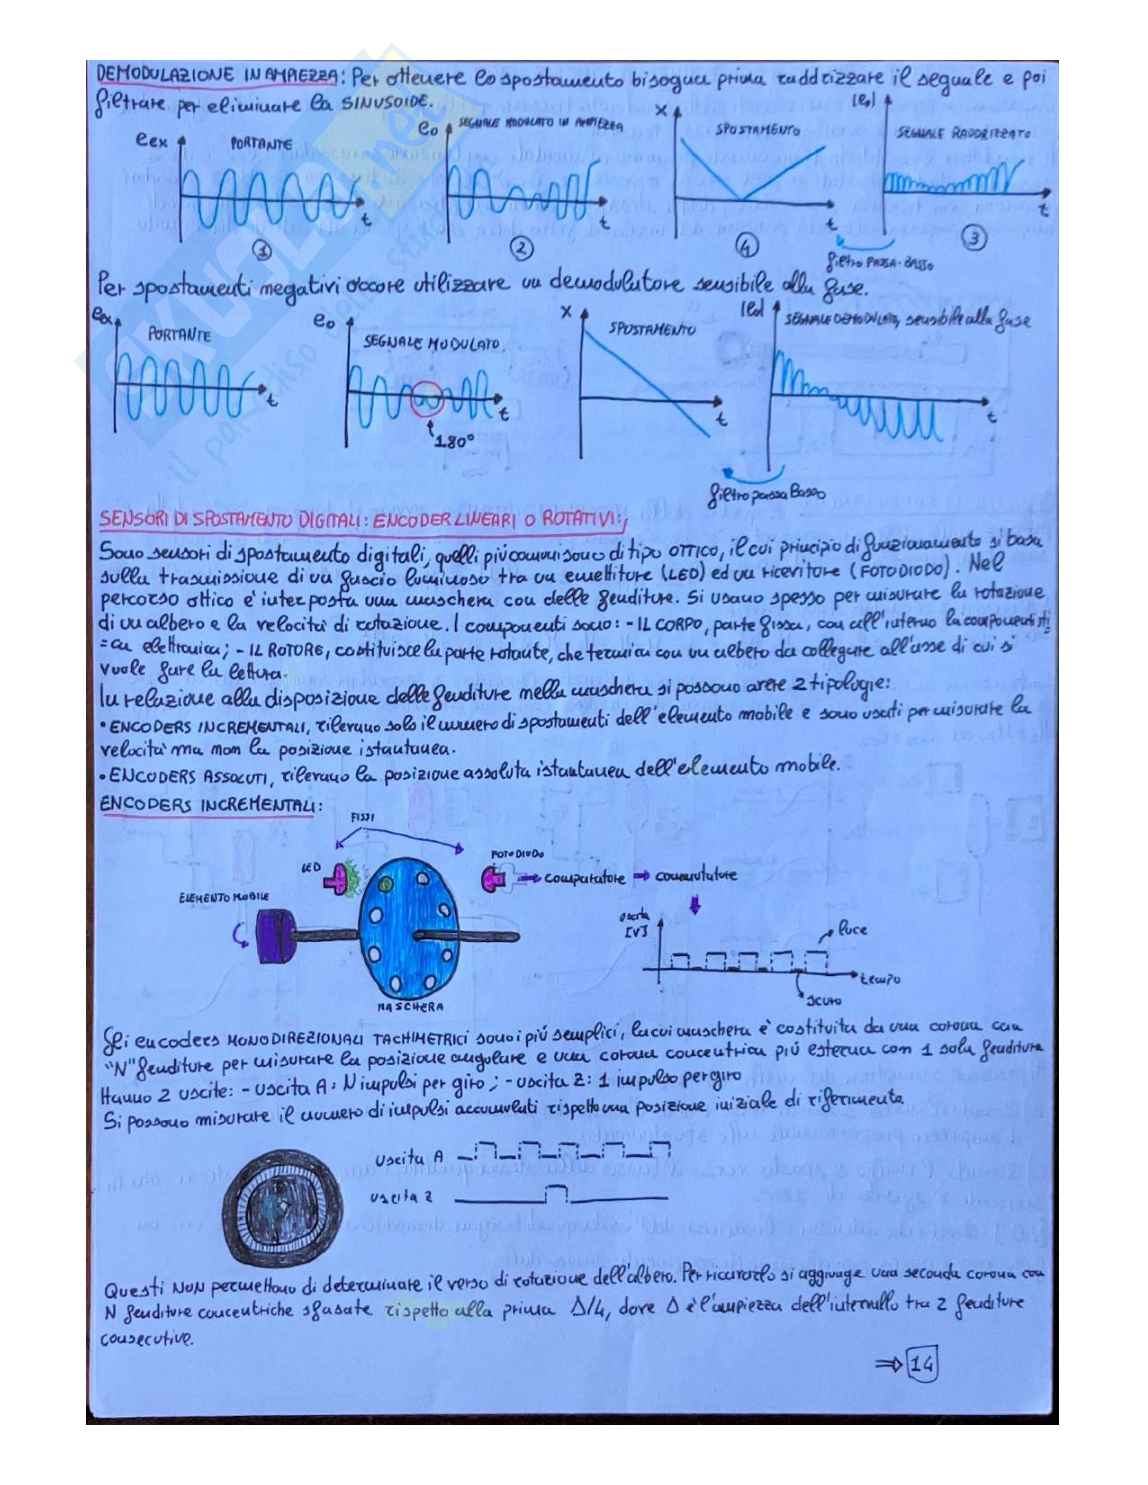 DEMODULAZIONE IN AMPIEZZA: Per ottenere lo spostamento bisogna prima raddrizzare il segnale e poi
filtrare per eliminare la SINUSOIDE.
eex PORTANTE t 1
eo SEGNALE MODULATO IN AMPIEZZA t 2
x SPOSTAMENTO t 4
|eo| SEGNALE RADDRIZZATO t 3
filtro PASSA-BASSO
Per spostamenti negativi occore utilizzare un demodulatore sensibile alla fase.
eex PORTANTE t
eo SEGNALE MODULATO t 180°
x SPOSTAMENTO t
|eo| SEGNALE DEMODULATO, sensibile alla fase t
filtro passa Basso
SENSORI DI SPOSTAMENTO DIGITALI: ENCODER LINEARI O ROTATIVI:
Sono sensori di spostamento digitali, quelli più comuni sono di tipo OTTICO, il cui principio di funzionamento si basa
sulla trasmissione di un fascio luminoso tra un emettitore (LED) ed un ricevitore (FOTODIODO). Nel
percorso ottico e' interposta una maschera con delle fenditure. Si usano spesso per misurare la rotazione
di un albero e la velocità di rotazione. I componenti sono: - IL CORPO, parte fissa, con all'interno la componentisti
=ca elettronica; - IL ROTORE, costituisce la parte rotante, che termina con un albero da collegare all'asse di cui si
vuole fare la lettura.
In relazione alla disposizione delle fenditure nella maschera si possono avere 2 tipologie:
• ENCODERS INCREMENTALI, rilevano solo il numero di spostamenti dell'elemento mobile e sono usati per misurare la
velocità ma non la posizione istantanea.
• ENCODERS ASSOLUTI, rilevano la posizione assoluta istantanea dell'elemento mobile.
ENCODERS INCREMENTALI:
FISSI
LED
FOTODIODO
comparatore
commutatore
ELEMENTO MOBILE
MASCHERA
uscita
[V]
luce
tempo
scuro
Gli encoders MONODIREZIONALI TACHIMETRICI sono i più semplici, la cui maschera è costituita da una corona con
"N" fenditure per misurare la posizione angolare e una corona concentrica più esterna con 1 sola fenditura
Hanno 2 uscite: - uscita A: N impulsi per giro; - uscita Z: 1 impulso per giro
Si possono misurare il numero di impulsi accumulati rispetto una posizione iniziale di riferimento.
uscita A
uscita Z
Questi NON permettono di determinare il verso di rotazione dell'albero. Per ricavarlo si aggiunge una seconda corona con
N fenditure concentriche sfasate rispetto alla prima Δ/4, dove Δ è l'ampiezza dell'intervallo tra 2 fenditure
consecutive.
⇒ 14